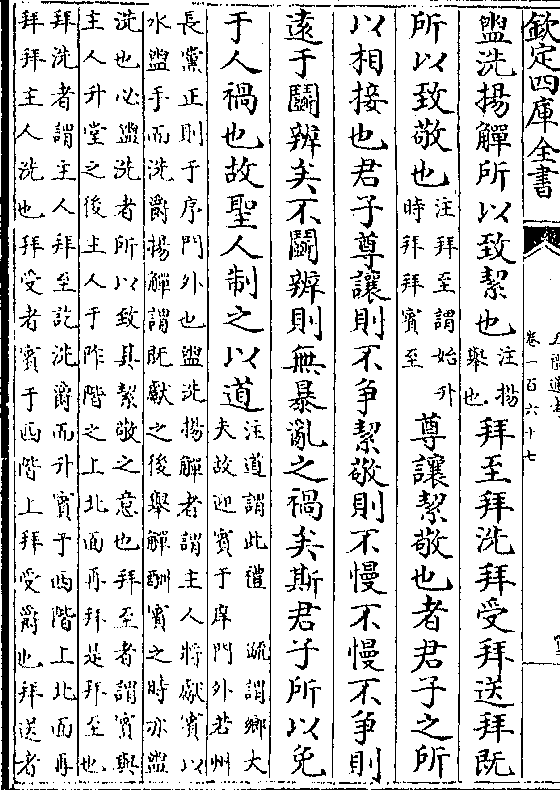 欽定四庫全書
卷一百六十七
盥洗揚觶所以致絜也注揚舉也拜至拜洗拜受拜送拜既
所以致敬也注拜至謂始升時拜拜賓至尊讓絜敬也者君子之所
以相接也君子尊讓則不爭絜敬則不慢不慢不爭則
遠于鬭辨矣不鬭辨則無暴亂之禍矣斯君子所以免
于人禍也故聖人制之以道注道謂此禮 疏謂鄉大夫故迎賓于庠門外若州
長黨正則于序門外也盥洗揚觶者謂主人將獻賓以
水盥手而洗爵揚觶謂既獻之後舉觶酬賓之時亦盥
洗也必盥洗者所以致其絜敬之意也拜至者謂賓與
主人升堂之後主人于阼階之上北面再拜是拜至也
拜洗者謂主人拜至訖洗爵而升賓于西階上北面再
拜拜主人洗也拜受者賓于西階上拜受爵也拜送者